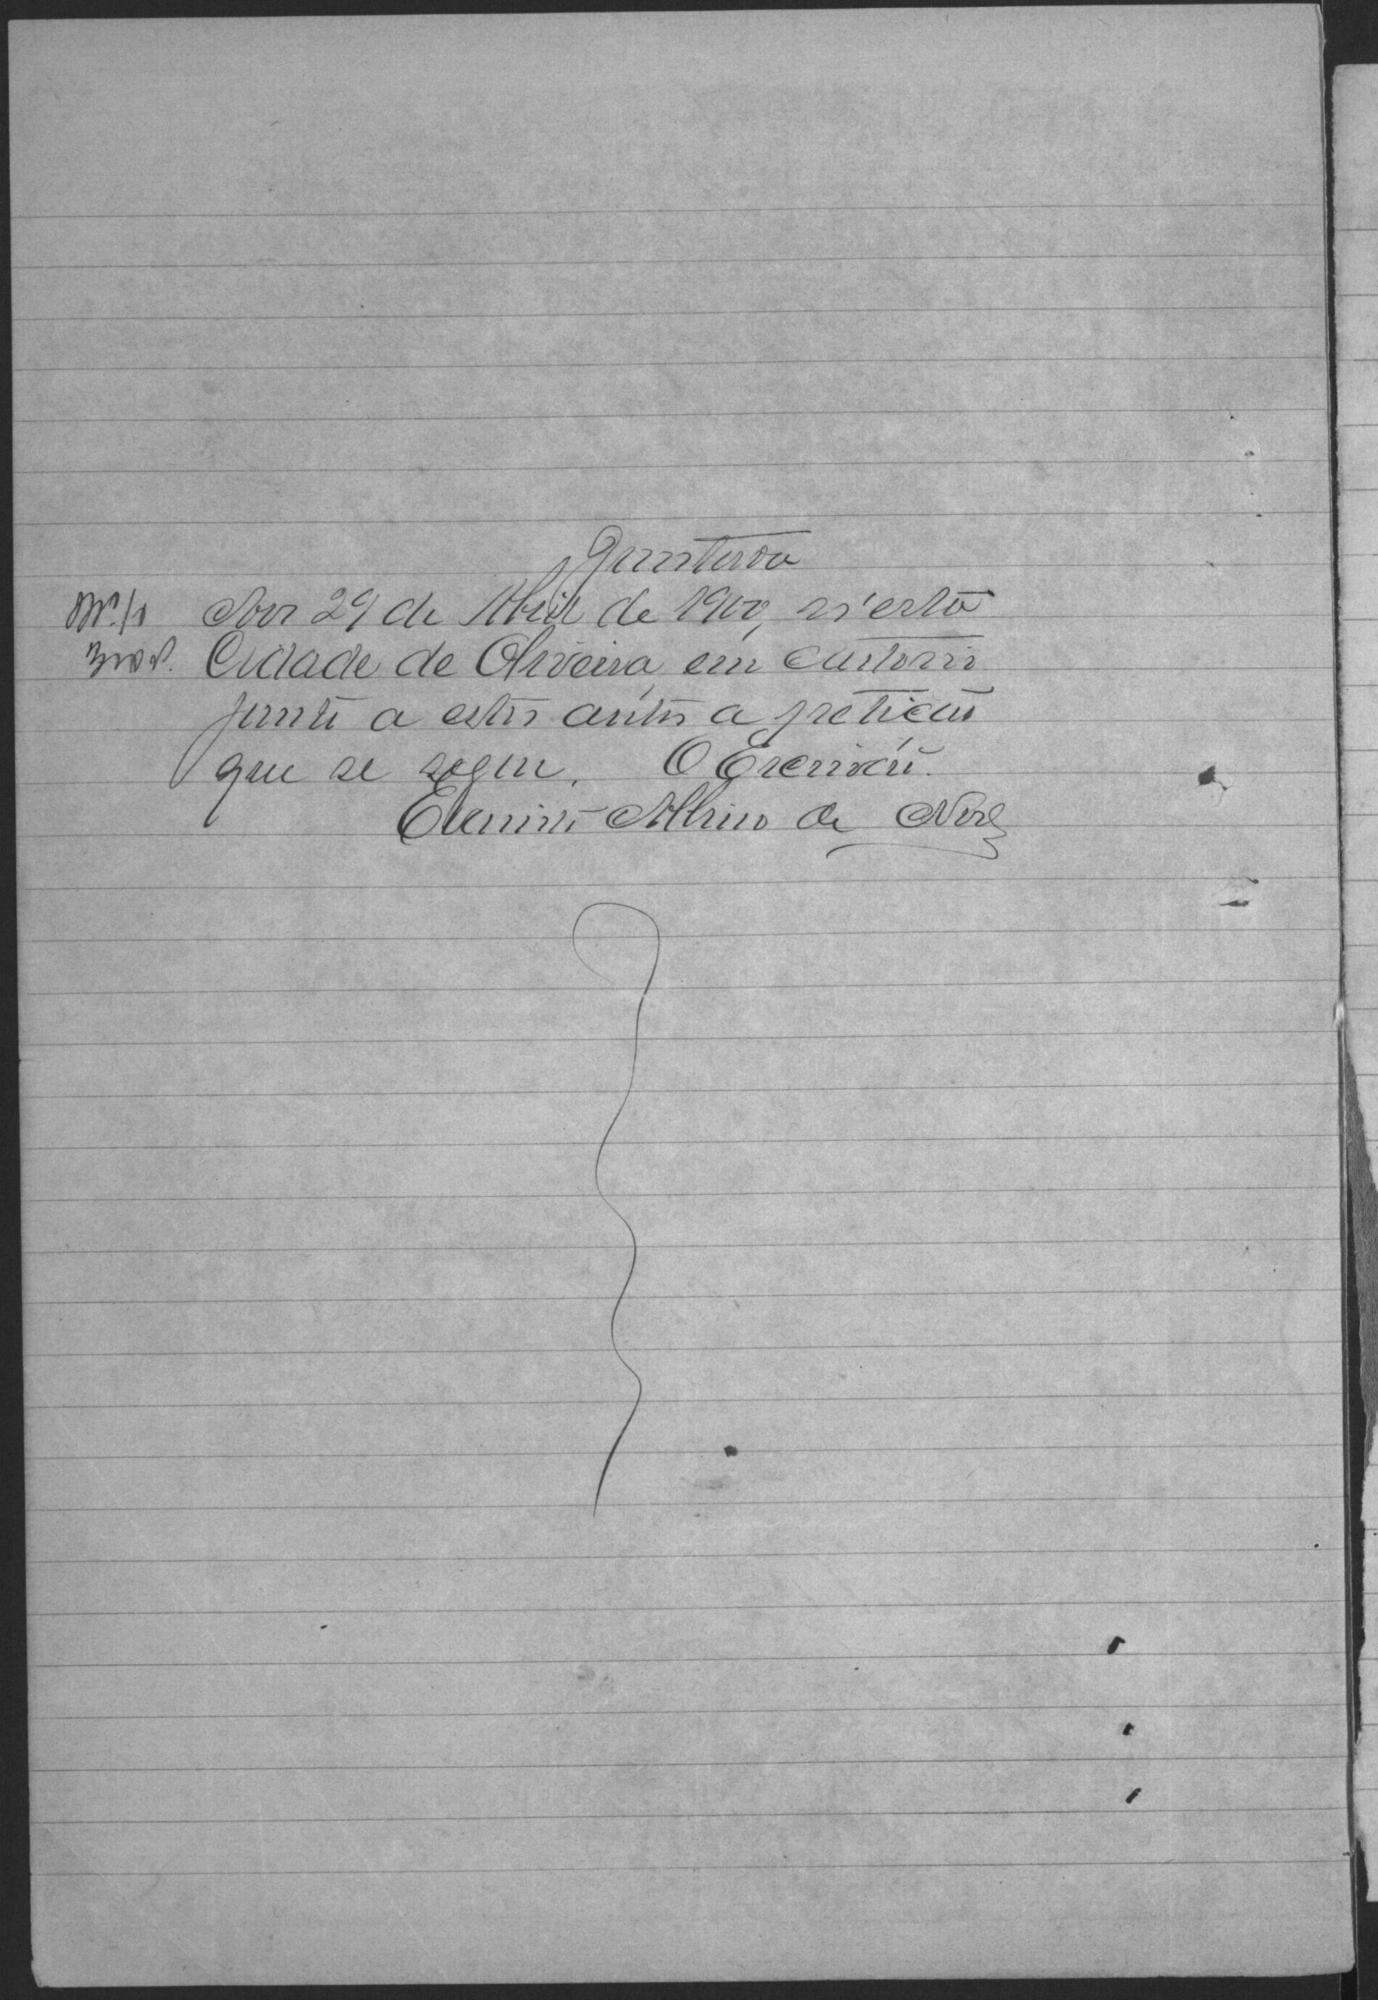 Juntada
Aos 29 de Abril de 1900, n'esta
Cidade de Oliveira, em cartorio
junto a estes autos a petição
que se segue. O Escrivão.
Albino de